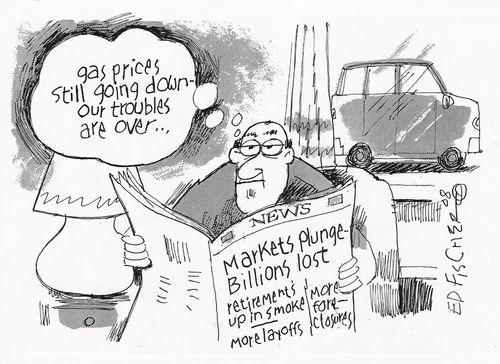 gas prices
still going down-
our troubles
are over...
NEWS
Markets plunge-
Billions lost
retirements
up in smoke
More layoffs
More
fore-
closures
ED FISCHER
08